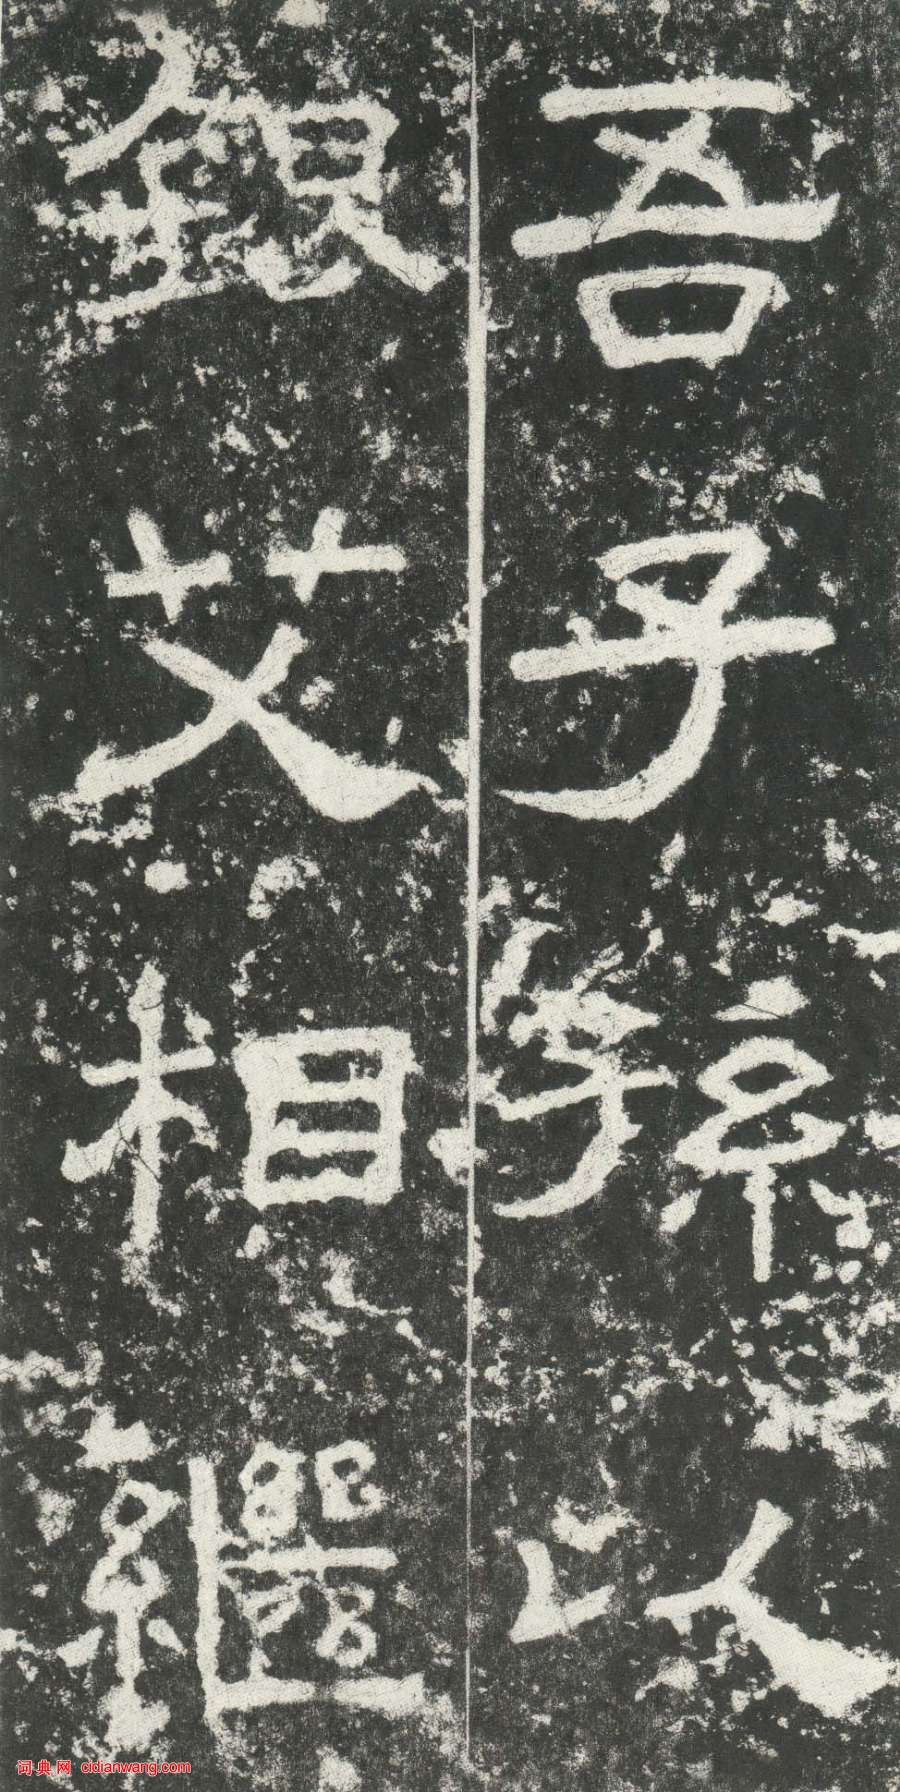 吾子孫以
銀艾相繼
词典网 cidianwang.com